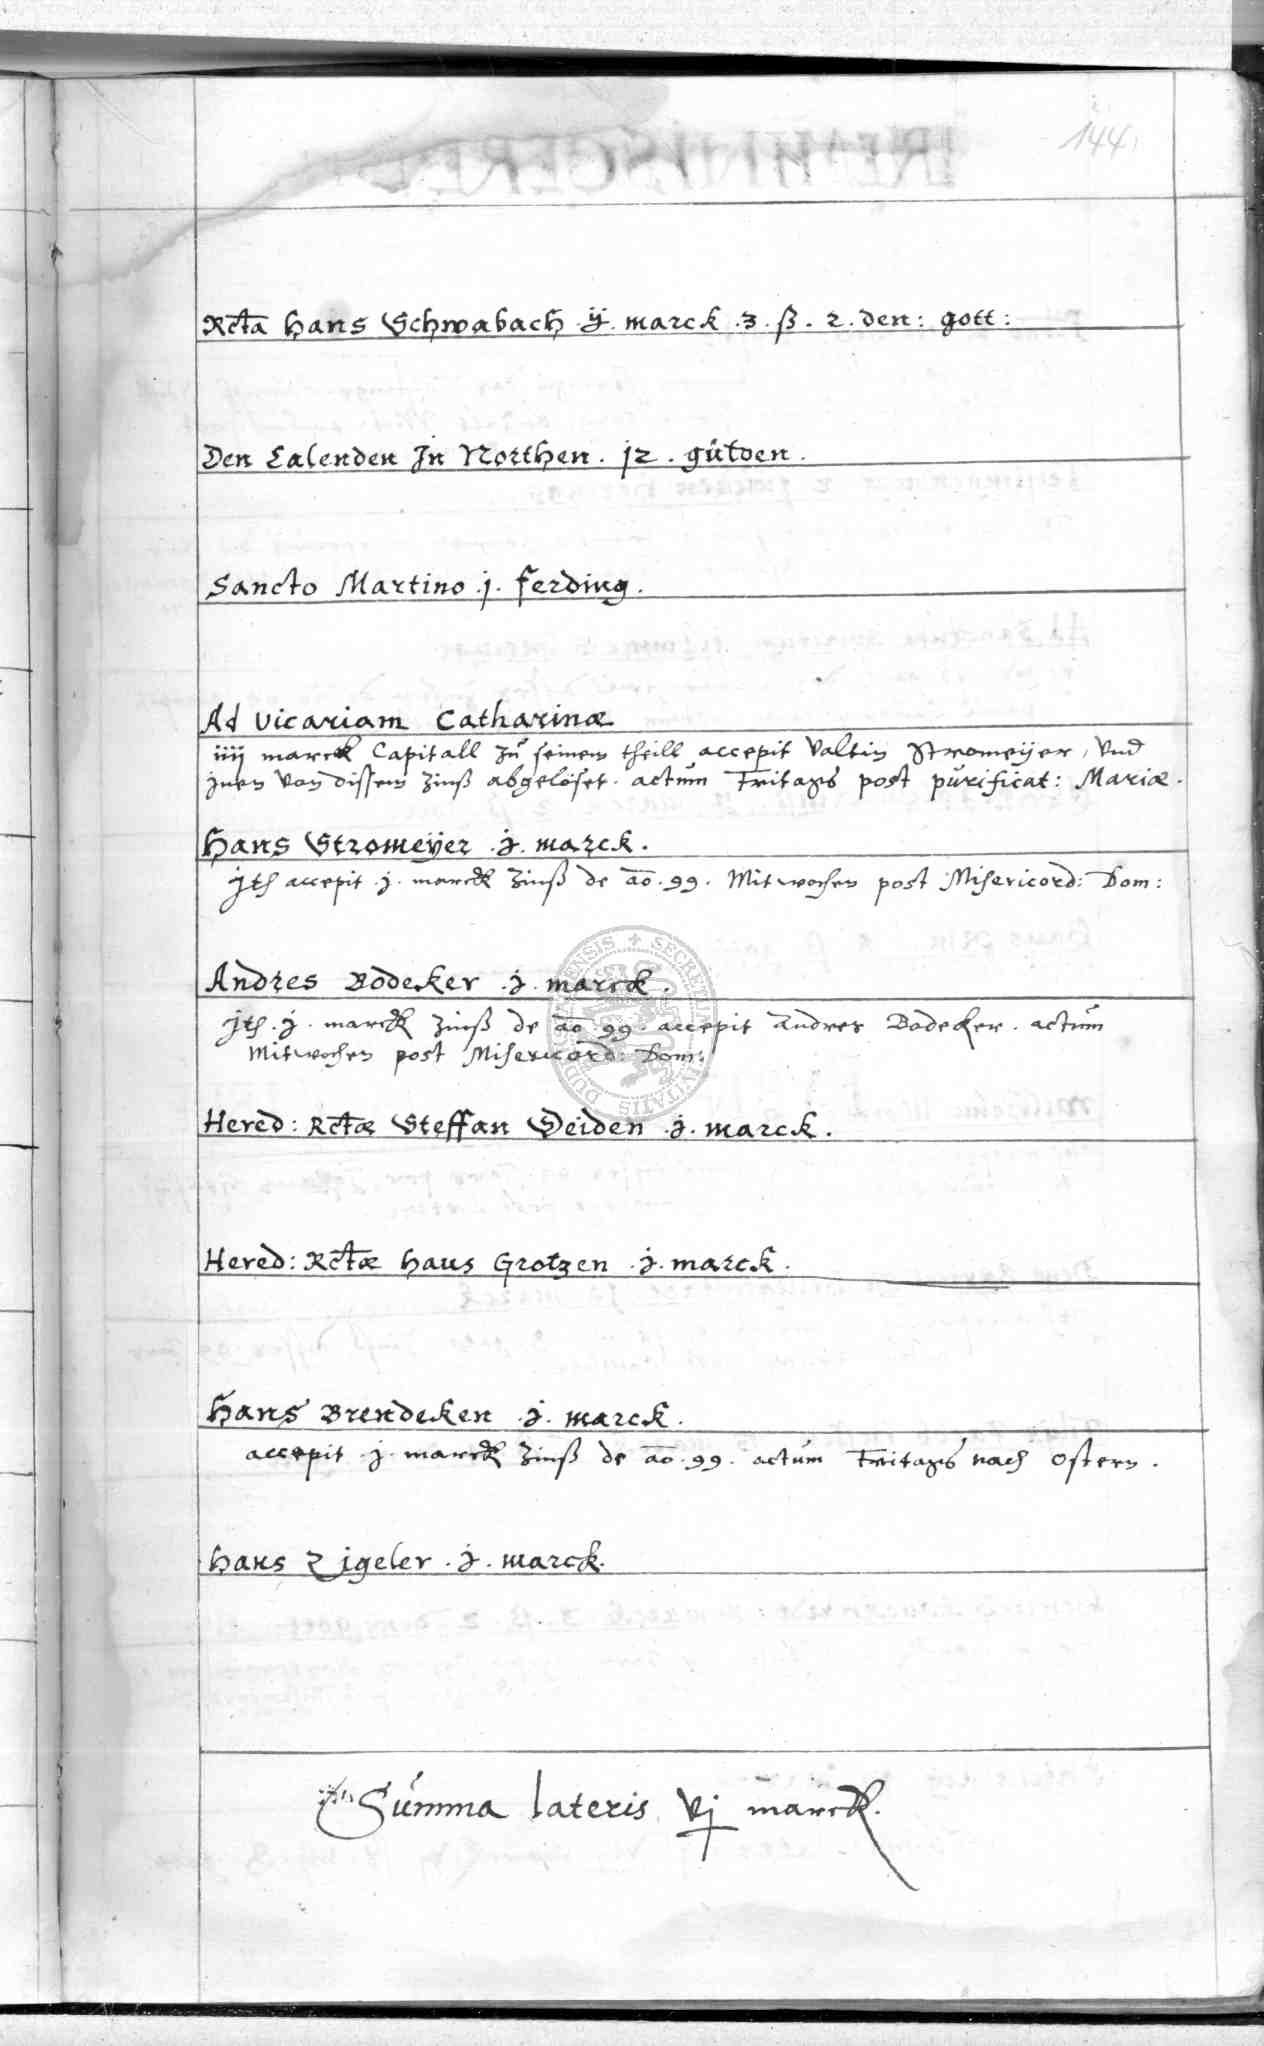 144
Rcta Hans Schwabach .ij. marck .3. ß. 2. den: gott:
Den Calenden In Northen. j2. gulden.
Sancto Martino .j. ferding.
Ad vicariam Catharinæ
iiij marck Capitall zu seinem theill accepit Valtin Stromeijer, Vnd
jnen von dissem zinß abgelöset. actum Fritags post purificat: Mariæ.
Hans Stromeijer .j. marck.
jth accepit .j. marck zinß de ao. 99. Mitwochen post Misericord: Dom:
Andres Bodeker .j. marck.
jth. j. marck zinß de ao. 99. accepit Andres Bodecker. actum
Mitwochen post Misericord: Dom:
Hered: Rctæ Steffan Seiden .j. marck.
Hered: Rctæ Haus Grotzen .j. marck.
Hans Brendeken .j. marck.
accepit .j. marck zinß de ao. 99. actum Fritags nach Ostern.
Hans Zigeler .j. marck.
Summa lateris vj marck.